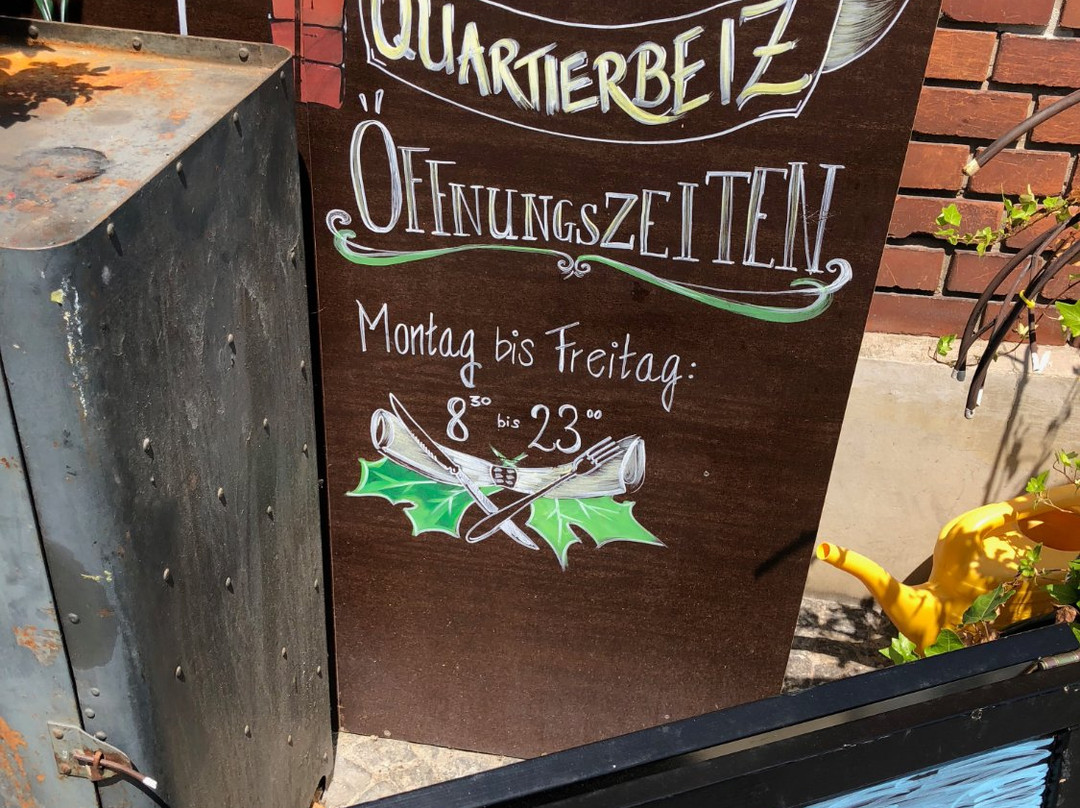 QUARTIERBEIZ
ÖFFNUNGSZEITEN
Montag bis Freitag:
8³⁰ bis 23⁰⁰